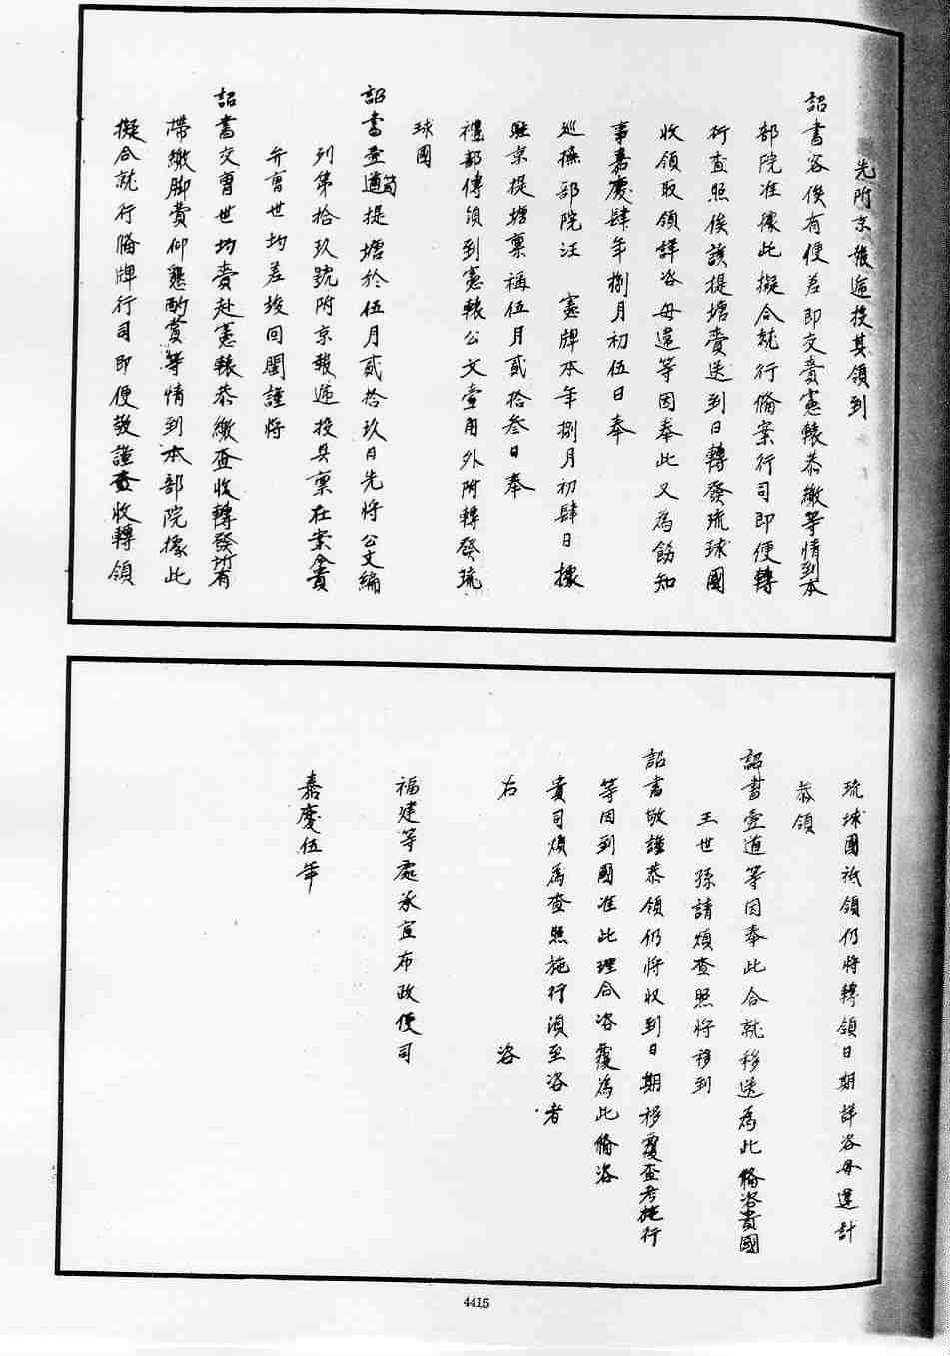 先附京報遞投其領到
詔書容俟有便差即交賫憲轅恭繳等情到本
部院准據此擬合就行備案行司即便轉
行查照俟該提塘賫送到日轉發琉球國
收領取領詳咨毋違等因奉此又為飭知
事嘉慶肆年捌月初伍日奉
巡撫部院汪 憲牌本年捌月初肆日據
駐京提塘稟稱伍月貳拾叁日奉
禮部傳領到憲轅公文壹角外附轉發琉
球國
詔書壹道筒提塘於伍月貳拾玖日先將公文編
列第拾玖號附京報遞投具稟在案今賫
弁曹世均差竣回閩謹將
詔書交曹世均賫赴憲轅恭繳查收轉發所有
帶繳脚費仰懇酌賞等情到本部院據此
擬合就行備牌行司即便敬謹查收轉領
琉球國祗領仍將轉領日期詳咨毋違計
恭領
詔書壹道等因奉此合就移送為此備咨貴國
王世孫請煩查照將移到
詔書敬謹恭領仍將收到日期移覆查考施行
等因到國准此理合咨覆為此備咨
貴司煩為查照施行須至咨者
右 咨
福建等處承宣布政使司
嘉慶伍年
4415